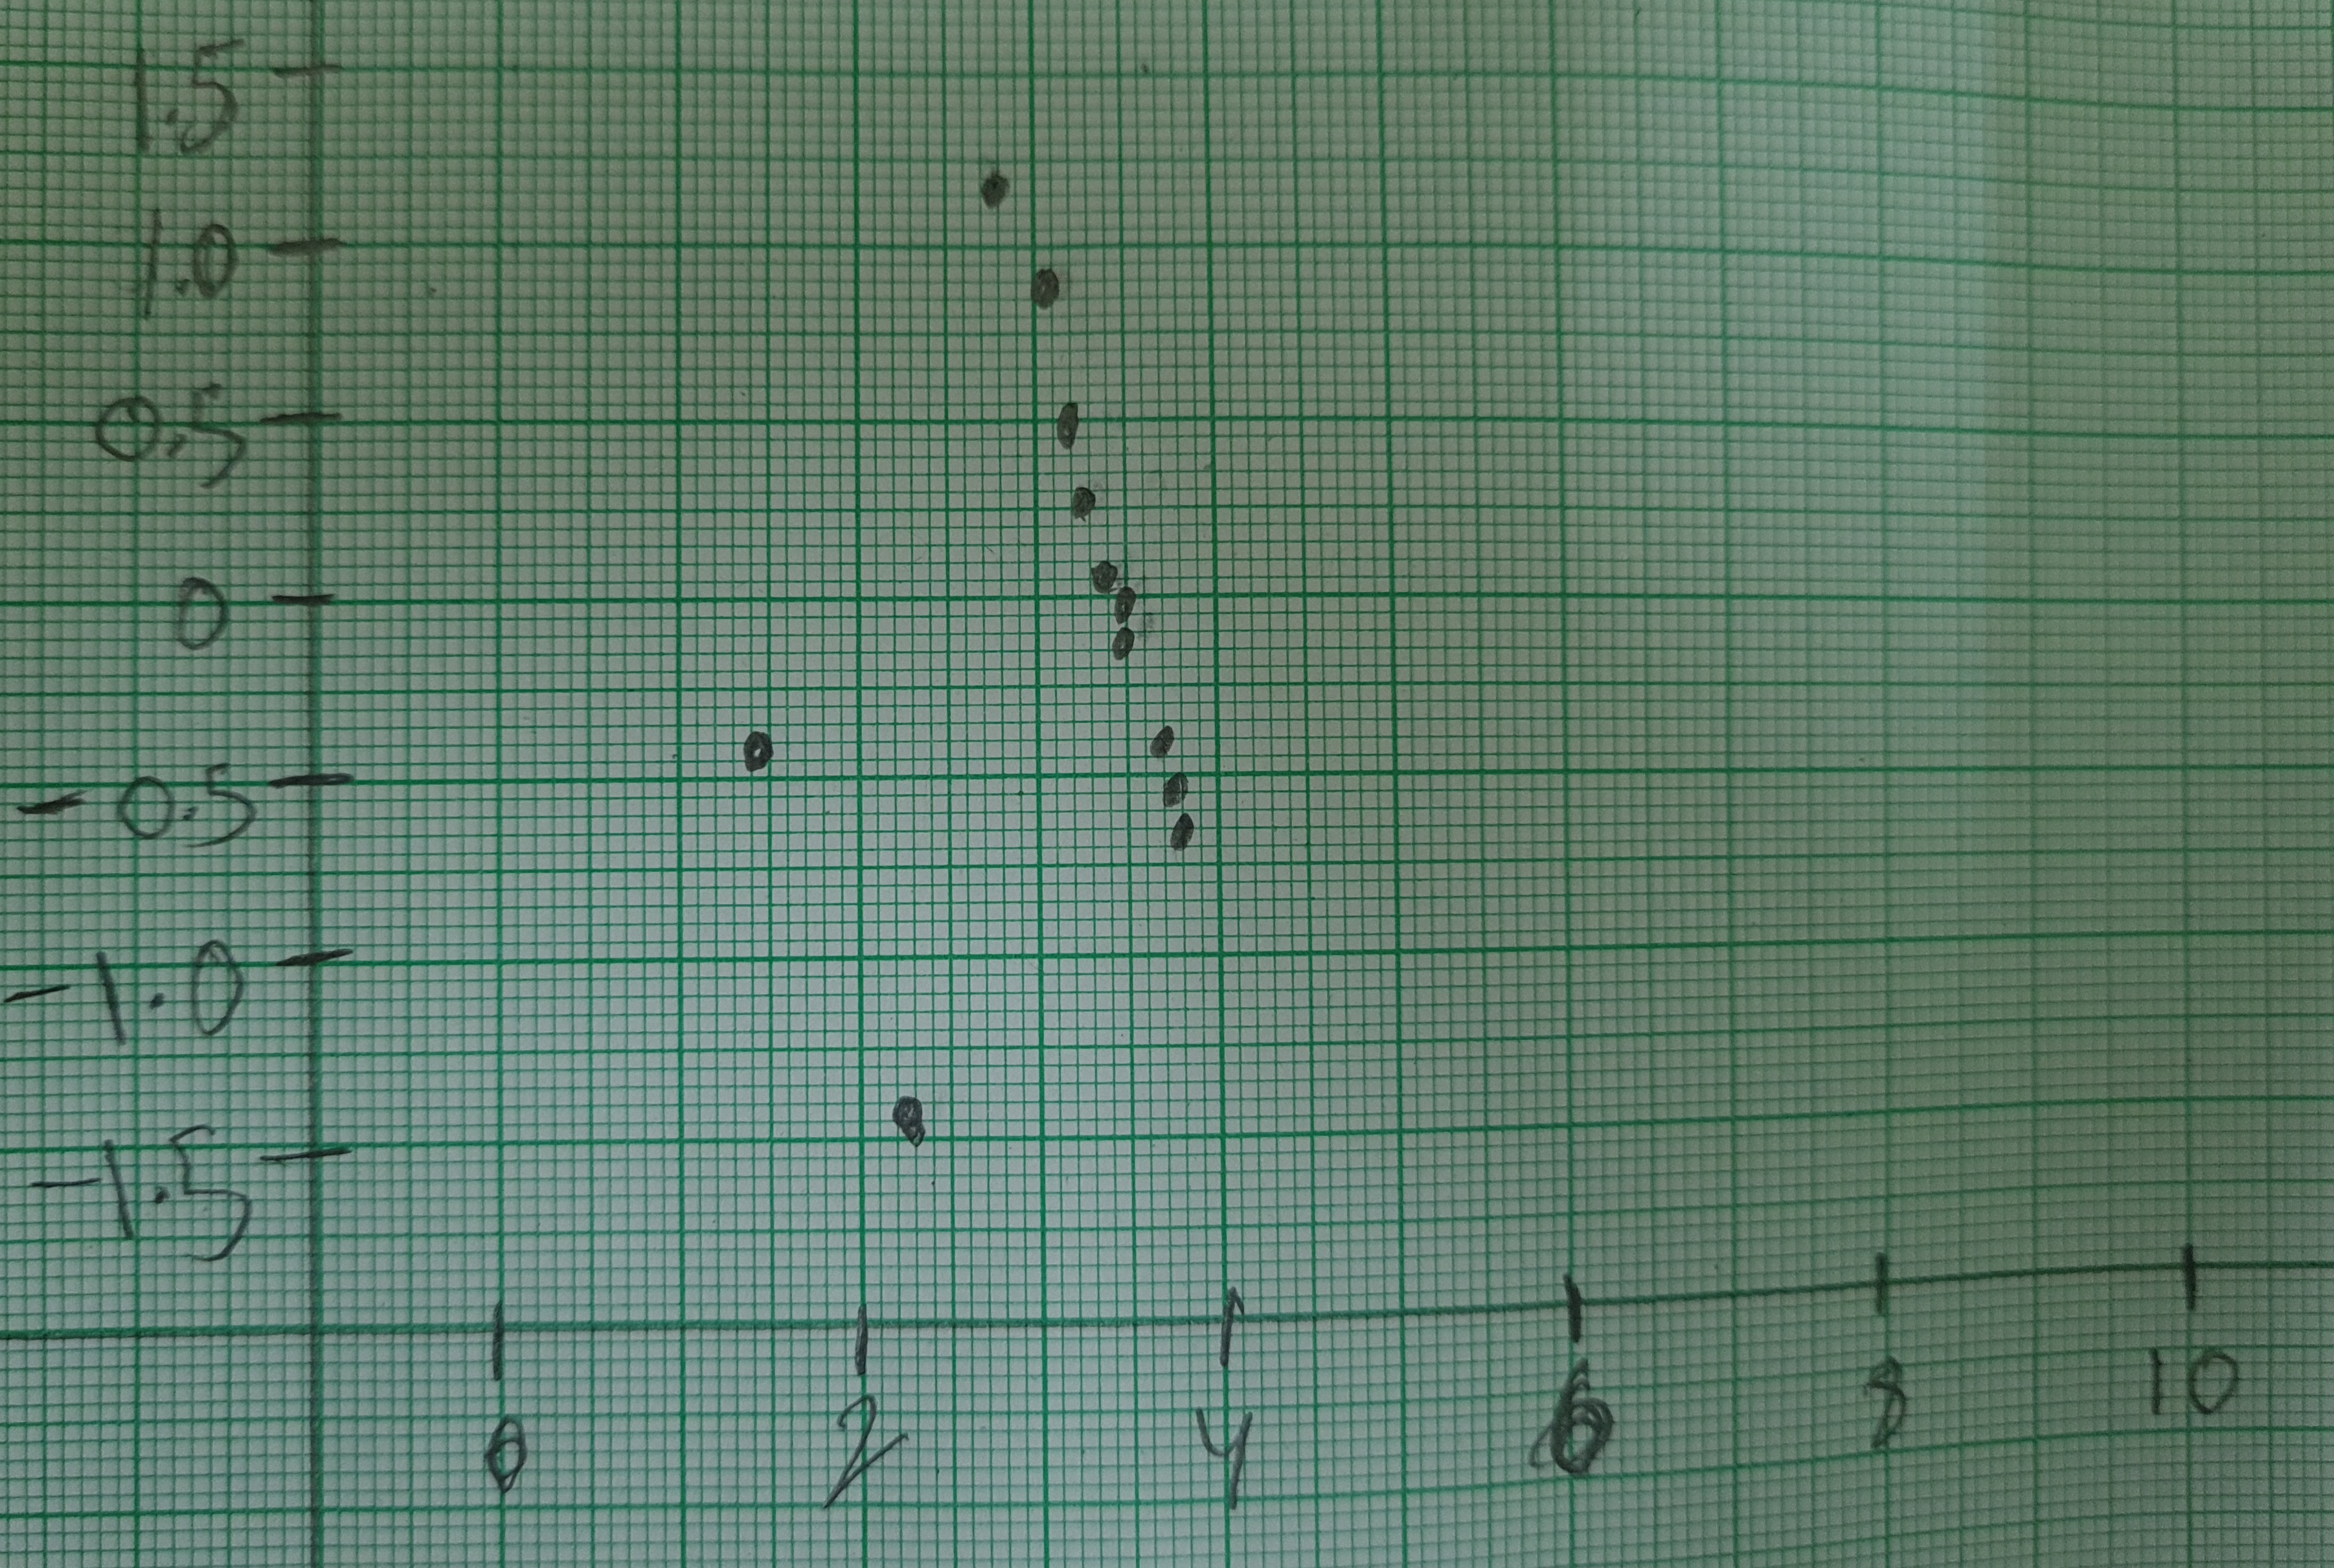 1.5
1.0
0.5
0
-0.5
-1.0
-1.5
0 2 4 6 8 10